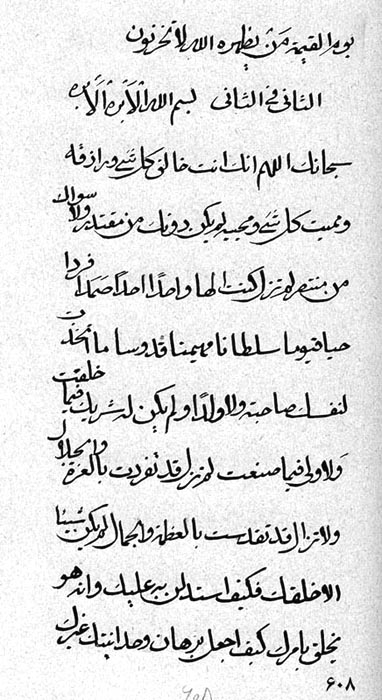 يوم القيمة من يظهره الله لا تحزنون
الثانى فى الثانى بسم الله الآثر الآثر
سبحانك اللهم انك انت خالق كل شىء ورازقه
ومميت كل شىء ومحييه لم يكن دونك من مقتدر ولا سواك
من منتصر لم تزل كنت الها واحدا احدا صمدا فردا
حيا قيوما سلطانا مهيمنا قدوسا ما اتخذت
لنفسك صاحبة ولا ولدا ولم يكن له شريك فيما خلقت
ولا ولى فيما صنعت لم تزل قد تفردت بالعزة والجلال
ولا تزال قد تقدست بالعظمة والجمال لم يكن شيئا
الا خلقك فكيف استدلن به عليك وانه هو
يخلق بامرك كيف اجعل برهان وحدانيتك غيرك
۶۰۸